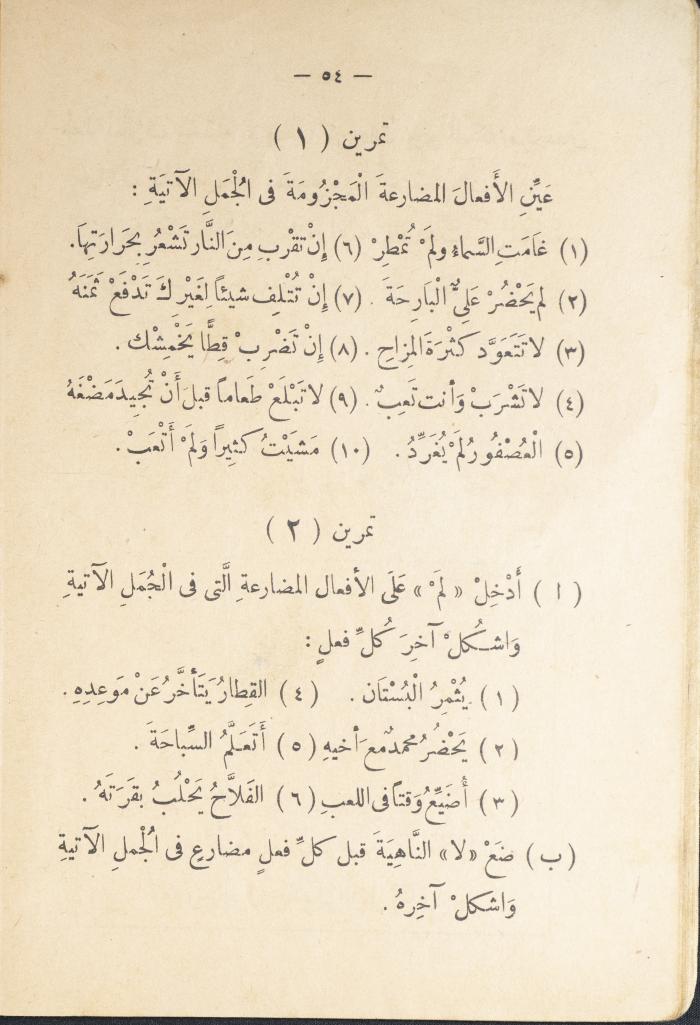 — ٥٤ —
تمرين ( ١ )
عَيِّنِ الأَفعالَ المضارعةَ الْمَجْزُومَةَ فى الْجُمَلِ الآتيَةِ :
(١) غاَمَتِ السَّماءُ ولَمْ تُمْطِرْ (٦) إِنْ تقْربِ مِنَ النَّارِ تَشْعُرْ بِحَرارَتِهاَ.
(٢) لم يَحْضُرْ عَلِىٌّ الْبَارِحَةَ . (٧) إِنْ تُتْلِف شيئاً لِغَيْرِكَ تَدْفَعْ ثَمَنَهُ
(٣) لا تَتَعَوَّد كثْرَةَ المِزاحِ . (٨) إِنْ تَضْرِبْ قِطًّا يَخْمِشْك .
(٤) لا تَشْرَبْ وَأنت تَعِبٌ . (٩) لا تَبْلَعْ طَعاماً قبلَ أَنْ تُجِيدَ مَضْغَهُ
(٥) الْعُصْفُورُ لَمْ يُغَرِّدُ . (١٠) مَشَيْتُ كثِيراً وَلَمْ أَتْعَبْ .
تمرين ( ٢ )
( ا ) أَدْخِلْ « لَمْ » عَلَى الأفعال المضارعةِ الَّتى فى الْجُمَلِ الآتيةِ
وَاشكُلْ آخِرَ كُلِّ فعلٍ :
( ١ ) يُثْمِرُ الْبُسْتَان . ( ٤ ) القِطارُ يَتَأَخَّرُ عَنْ مَوعِدِهِ .
( ٢ ) يَحْضُرُ محمدٌ معَ أخيهِ ( ٥ ) أَتَعَلَّمُ السِّباحَةَ .
( ٣ ) أُضَيِّعُ وَقتاً فى اللعبِ ( ٦ ) الفَلاَّحُ يَحْلُبُ بقَرَتَهُ .
( ب ) ضَعْ « لا » النَّاهِيَةَ قبل كلِّ فعلٍ مضارعٍ فى الْجُملِ الآتيةِ
وَاشكلْ آخِرهُ .